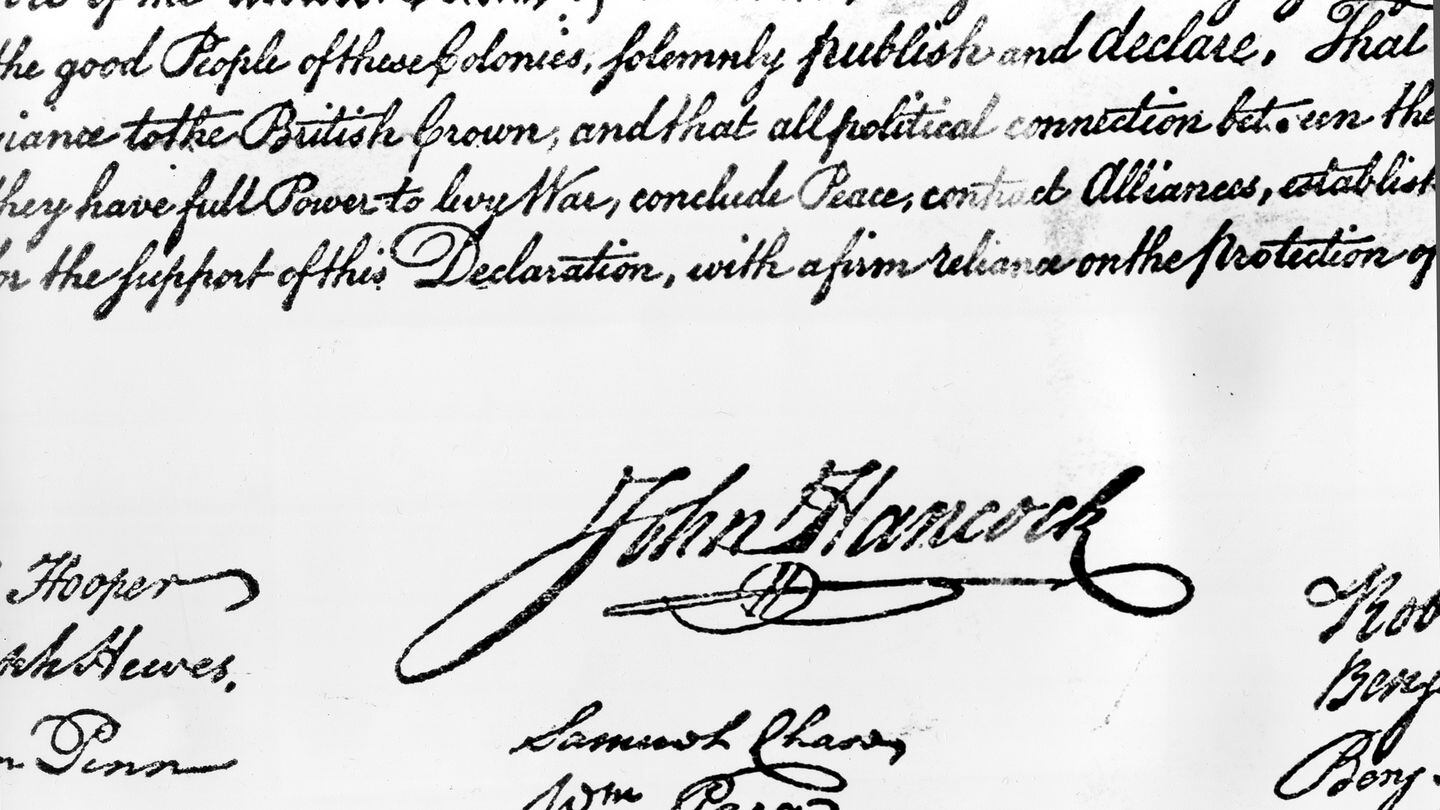 the good People of these Colonies, solemnly publish and declare, That
to the British Crown, and that all political connection between the
they have full Power to levy War, conclude Peace, contract Alliances, establish
for the support of this Declaration, with a firm reliance on the protection of
John Hancock
Hooper
Hewes.
Penn
Samuel Chase
Wm Paca
Rob
Benj
Benj